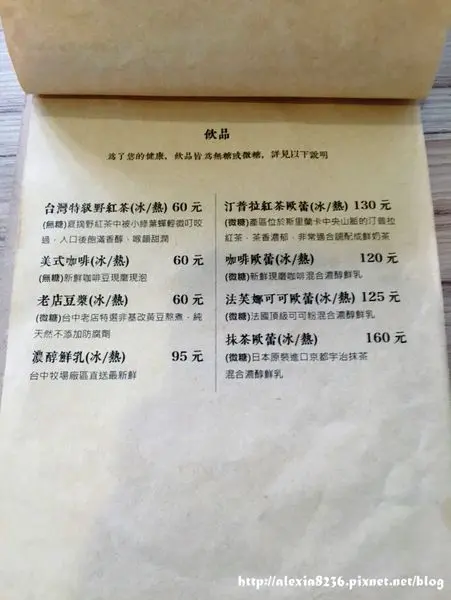 飲品
為了您的健康，飲品皆為無糖或微糖，詳見以下說明
台灣特級野紅茶(冰/熱) 60 元
(無糖)衰摘野紅茶中被小綠葉蟬輕微叮咬
過，入口後飽滿香醇、喉韻甜潤
美式咖啡(冰/熱) 60 元
(無糖)新鮮咖啡豆現磨現泡
老店豆漿(冰/熱) 60 元
(微糖)台中老店特選非基改黃豆熬煮，純
天然不添加防腐劑
濃醇鮮乳(冰/熱) 95 元
台中牧場廠區直送最新鮮
汀普拉紅茶歐蕾(冰/熱) 130 元
(微糖)產區位於斯里蘭卡中央山脈的汀普拉
紅茶，茶香濃郁，非常適合調配成鮮奶茶
咖啡歐蕾(冰/熱) 120 元
(微糖)新鮮現磨咖啡混合濃醇鮮乳
法芙娜可可歐蕾(冰/熱) 125 元
(微糖)法國頂級可可粉混合濃醇鮮乳
抹茶歐蕾(冰/熱) 160 元
(微糖)日本原裝進口京都宇治抹茶
混合濃醇鮮乳
http://alexia8236.pixnet.net/blog